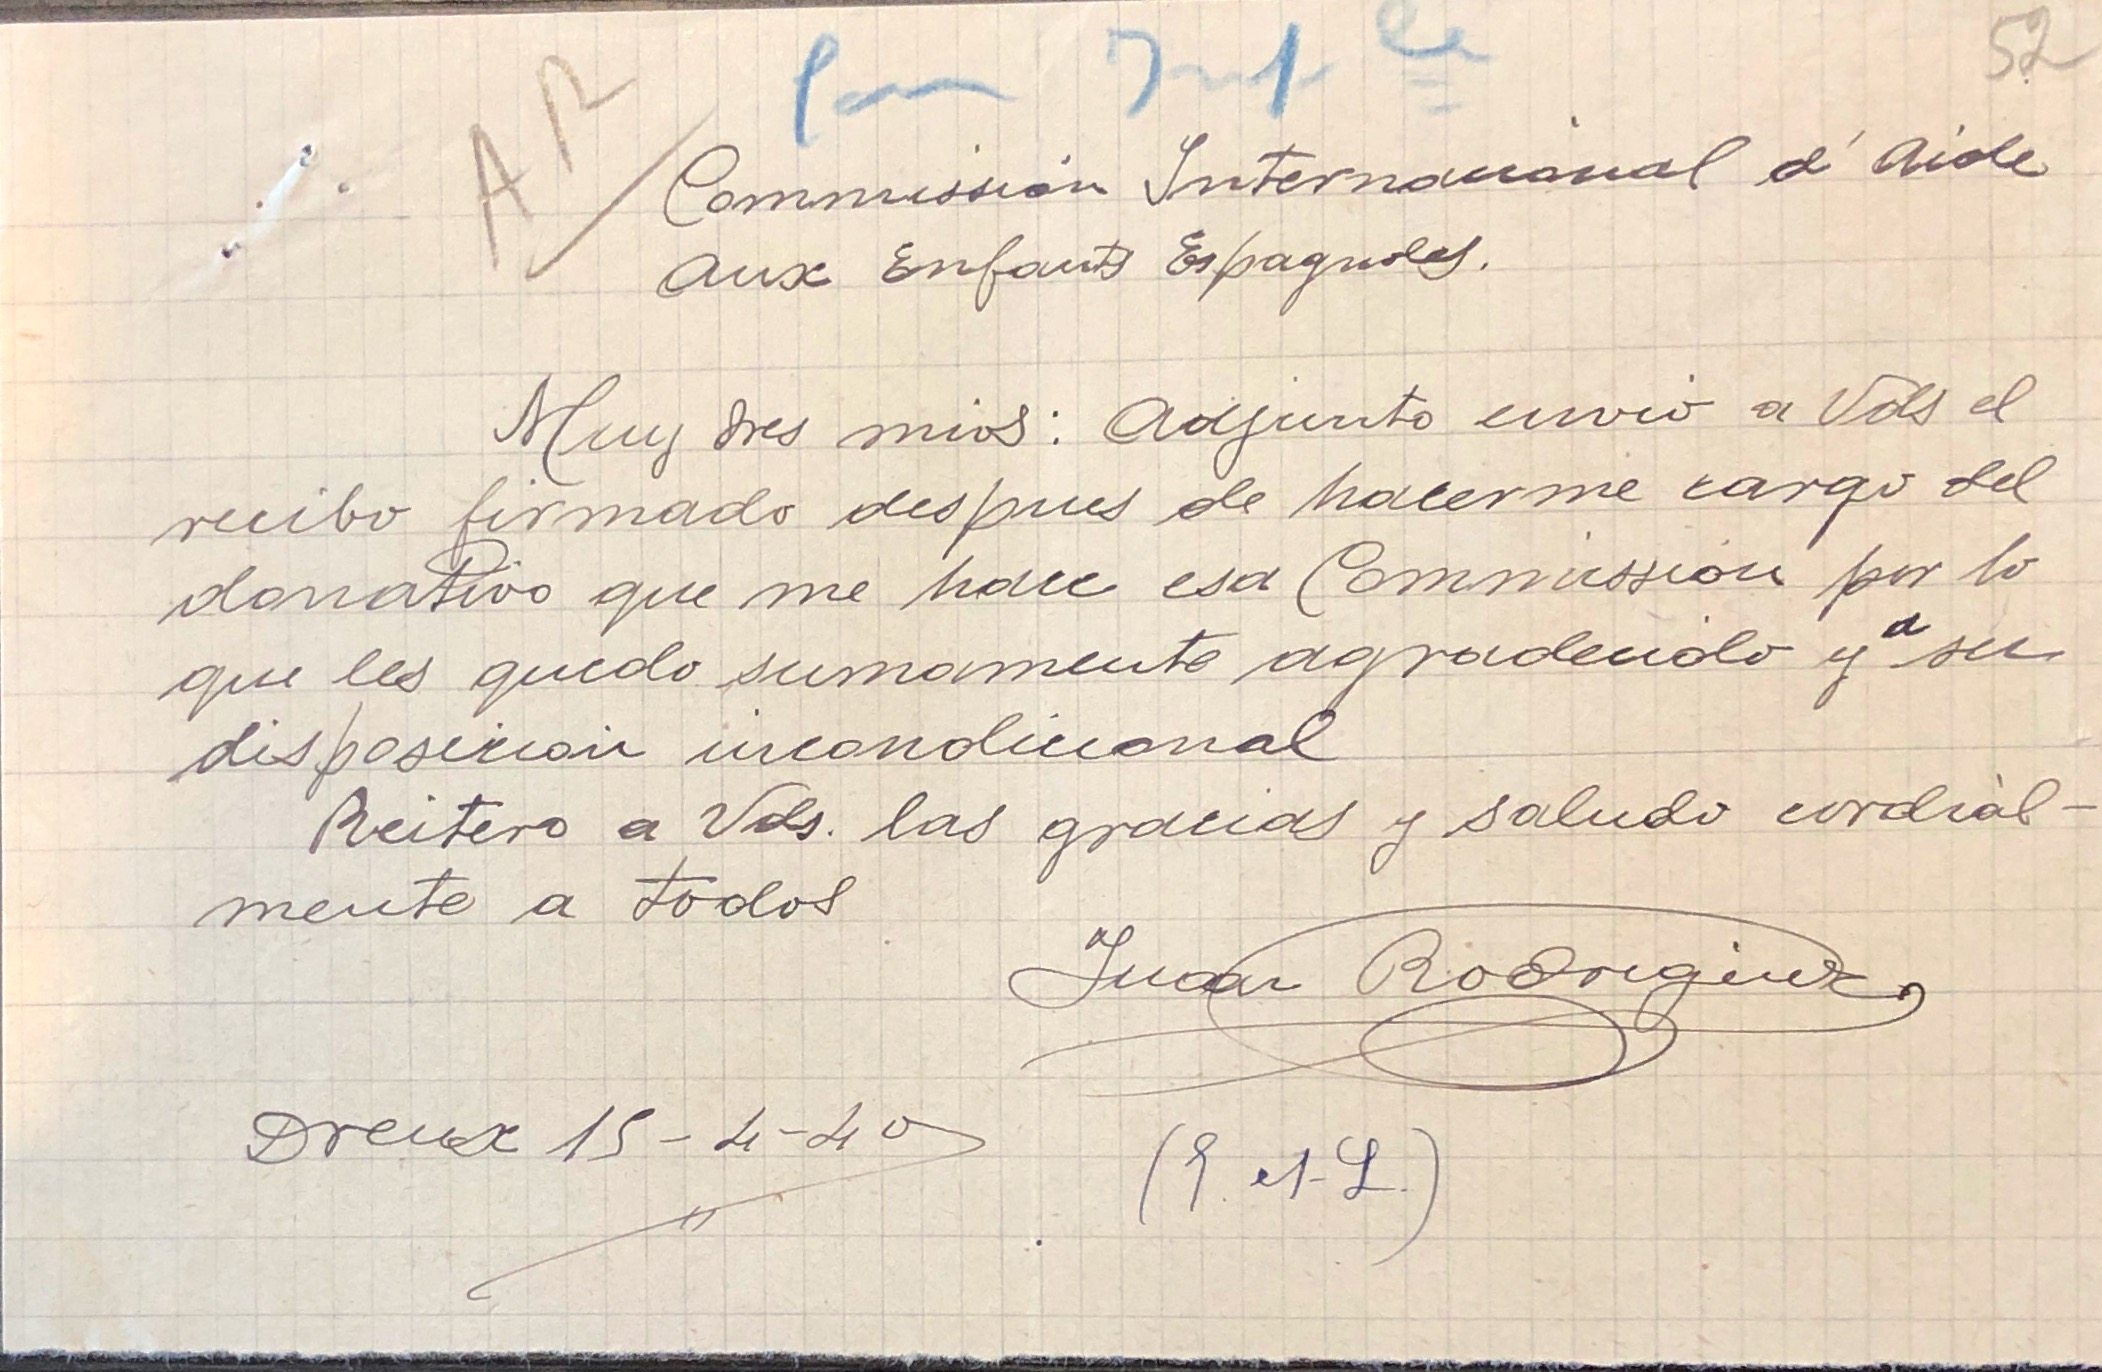 52
AR
Commissión Internacional d' Aide
aux Enfants Espagnoles.
Muy Sres mios: Adjunto envio a Vds el
recibo firmado despues de hacerme cargo del
donativo que me hace esa Commissión por lo
que les quedo sumamente agradecido y a su
disposición incondicional
Reitero a Vds. las gracias y saludo cordial-
mente a todos
Juan Rodriguez
Dreux 15-4-40
(E. et L.)